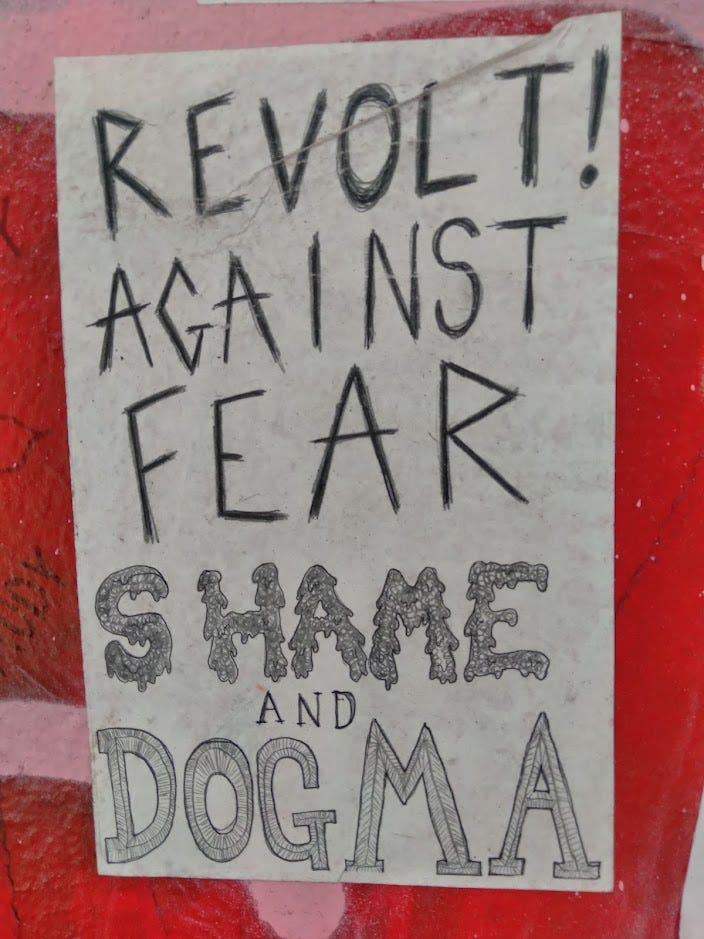 REVOLT!
AGAINST
FEAR
SHAME
AND
DOGMA